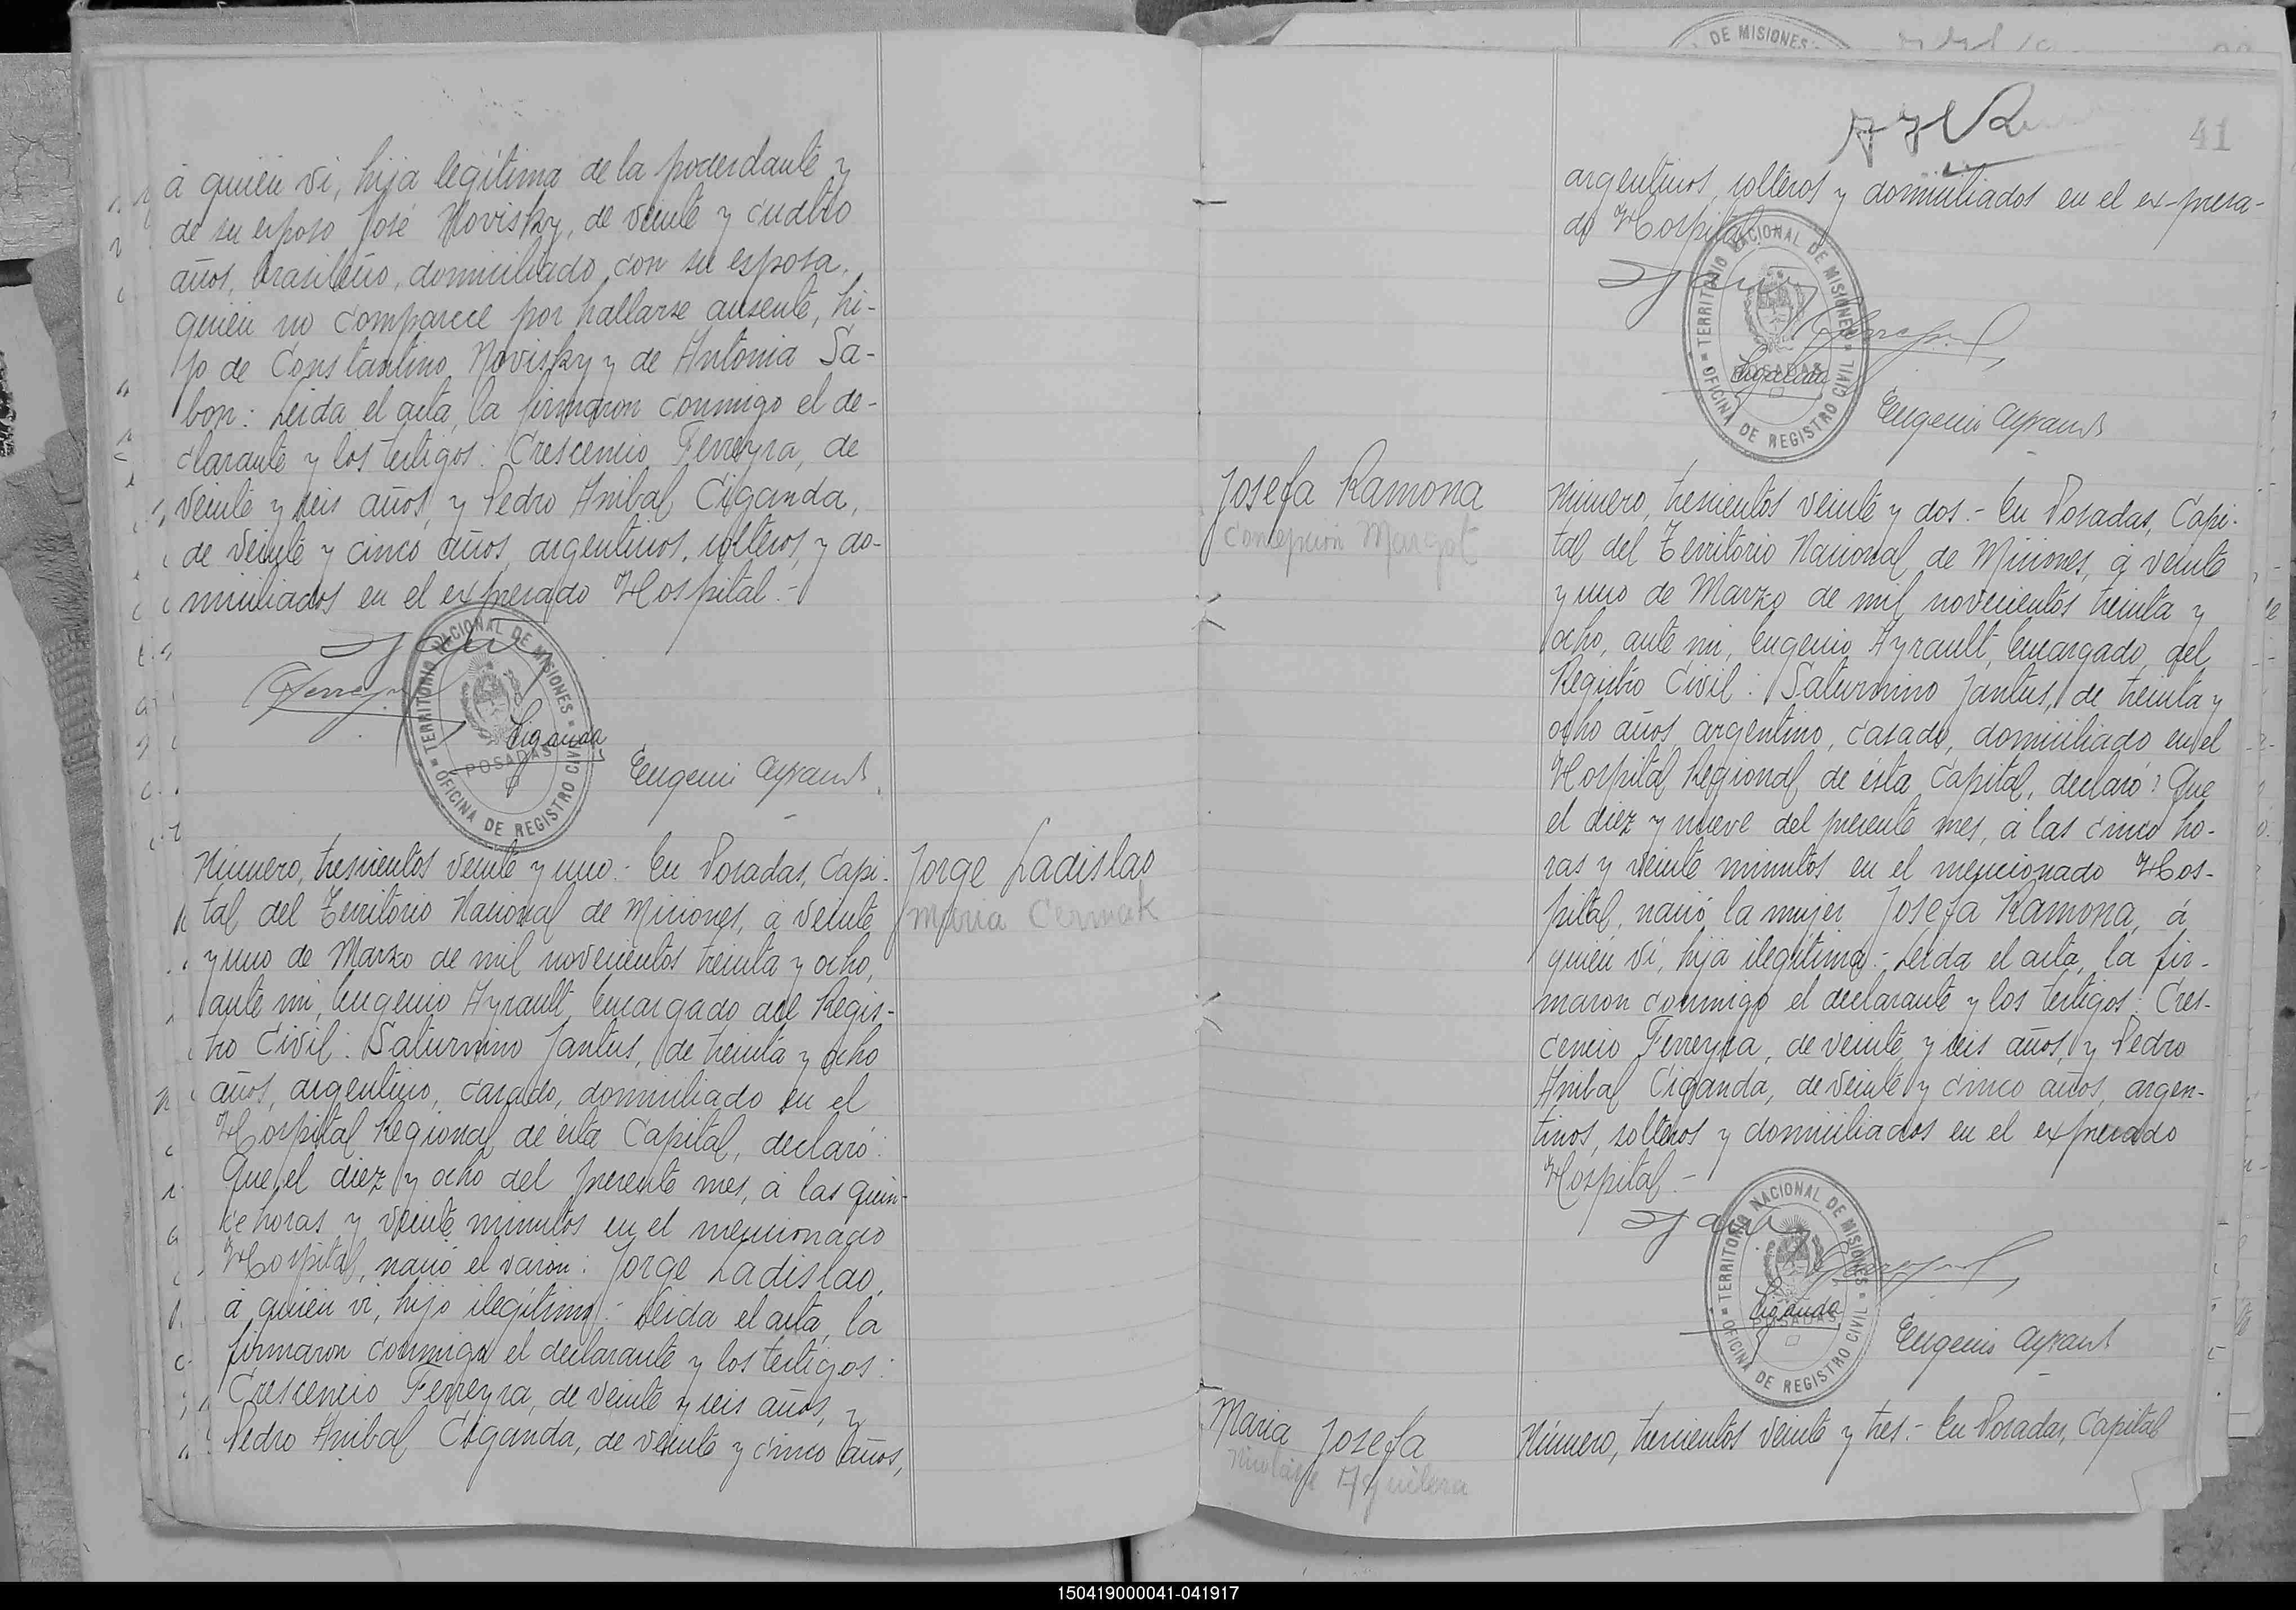 á quien ví, hija legítima de la poderdante y
de su esposo José Novisky, de veinte y cuatro
años, brasileño, domiciliado con su esposa,
quien no comparece por hallarse ausente, hi-
jo de Constantino Novisky y de Antonia Sa-
bon: Leida el acta, la firmaron conmigo el de-
clarante y los testigos: Crescencio Ferreyra, de
veinte y seis años, y Pedro Anibal Ciganda,
de veinte y cinco años, argentinos, solteros, y do-
miciliados en el expresado Hospital.-
TERRITORIO NACIONAL DE MISIONES
OFICINA DE REGISTRO CIVIL
POSADAS
Ciganda
Eugenio Ayrault
Jorge Ladislao
Maria Cermak
Número, trescientos veinte y uno.- En Posadas, Capi-
tal del Territorio Nacional de Misiones, á veinte
y uno de Marzo de mil novecientos treinta y ocho,
ante mi, Eugenio Ayrault, Encargado del Regis-
tro Civil: Saturnino Jantus, de treinta y ocho
años, argentino, casado, domiciliado en el
Hospital Regional de ésta Capital, declaró:
Que el diez y ocho del presente mes, á las quin-
ce horas y veinte minutos en el mencionado
Hospital, nació el varón: Jorge Ladislao,
á quien ví, hijo ilegítimo.- Leida el acta, la
firmaron conmigo el declarante y los testigos:
Crescencio Ferreyra, de veinte y seis años, y
Pedro Anibal Ciganda, de veinte y cinco años,
DE MISIONES
41
argentinos, solteros y domiciliados en el expresa-
do Hospital.
TERRITORIO NACIONAL DE MISIONES
OFICINA DE REGISTRO CIVIL
POSADAS
Ciganda
Eugenio Ayrault
Josefa Ramona
Concepción Margot
Número, trescientos veinte y dos.- En Posadas, Capi-
tal del Territorio Nacional de Misiones, á veinte
y uno de Marzo de mil novecientos treinta y
ocho, ante mi, Eugenio Ayrault, Encargado del
Registro Civil: Saturnino Jantus, de treinta y
ocho años argentino, casado, domiciliado en el
Hospital Regional de ésta Capital, declaró: Que
el diez y nueve del presente mes, á las cinco ho-
ras y veinte minutos en el mencionado Hos-
pital, nació la mujer Josefa Ramona, á
quien ví, hija ilegítima.- Leida el acta, la fir-
maron conmigo el declarante y los testigos: Cres-
cencio Ferreyra, de veinte y seis años, y Pedro
Anibal Ciganda, de veinte y cinco años, argen-
tinos, solteros y domiciliados en el expresado
Hospital.-
TERRITORIO NACIONAL DE MISIONES
OFICINA DE REGISTRO CIVIL
POSADAS
Ciganda
Eugenio Ayrault
Maria Josefa
Aguilera
Número, trescientos veinte y tres.- En Posadas, Capital
150419000041-041917